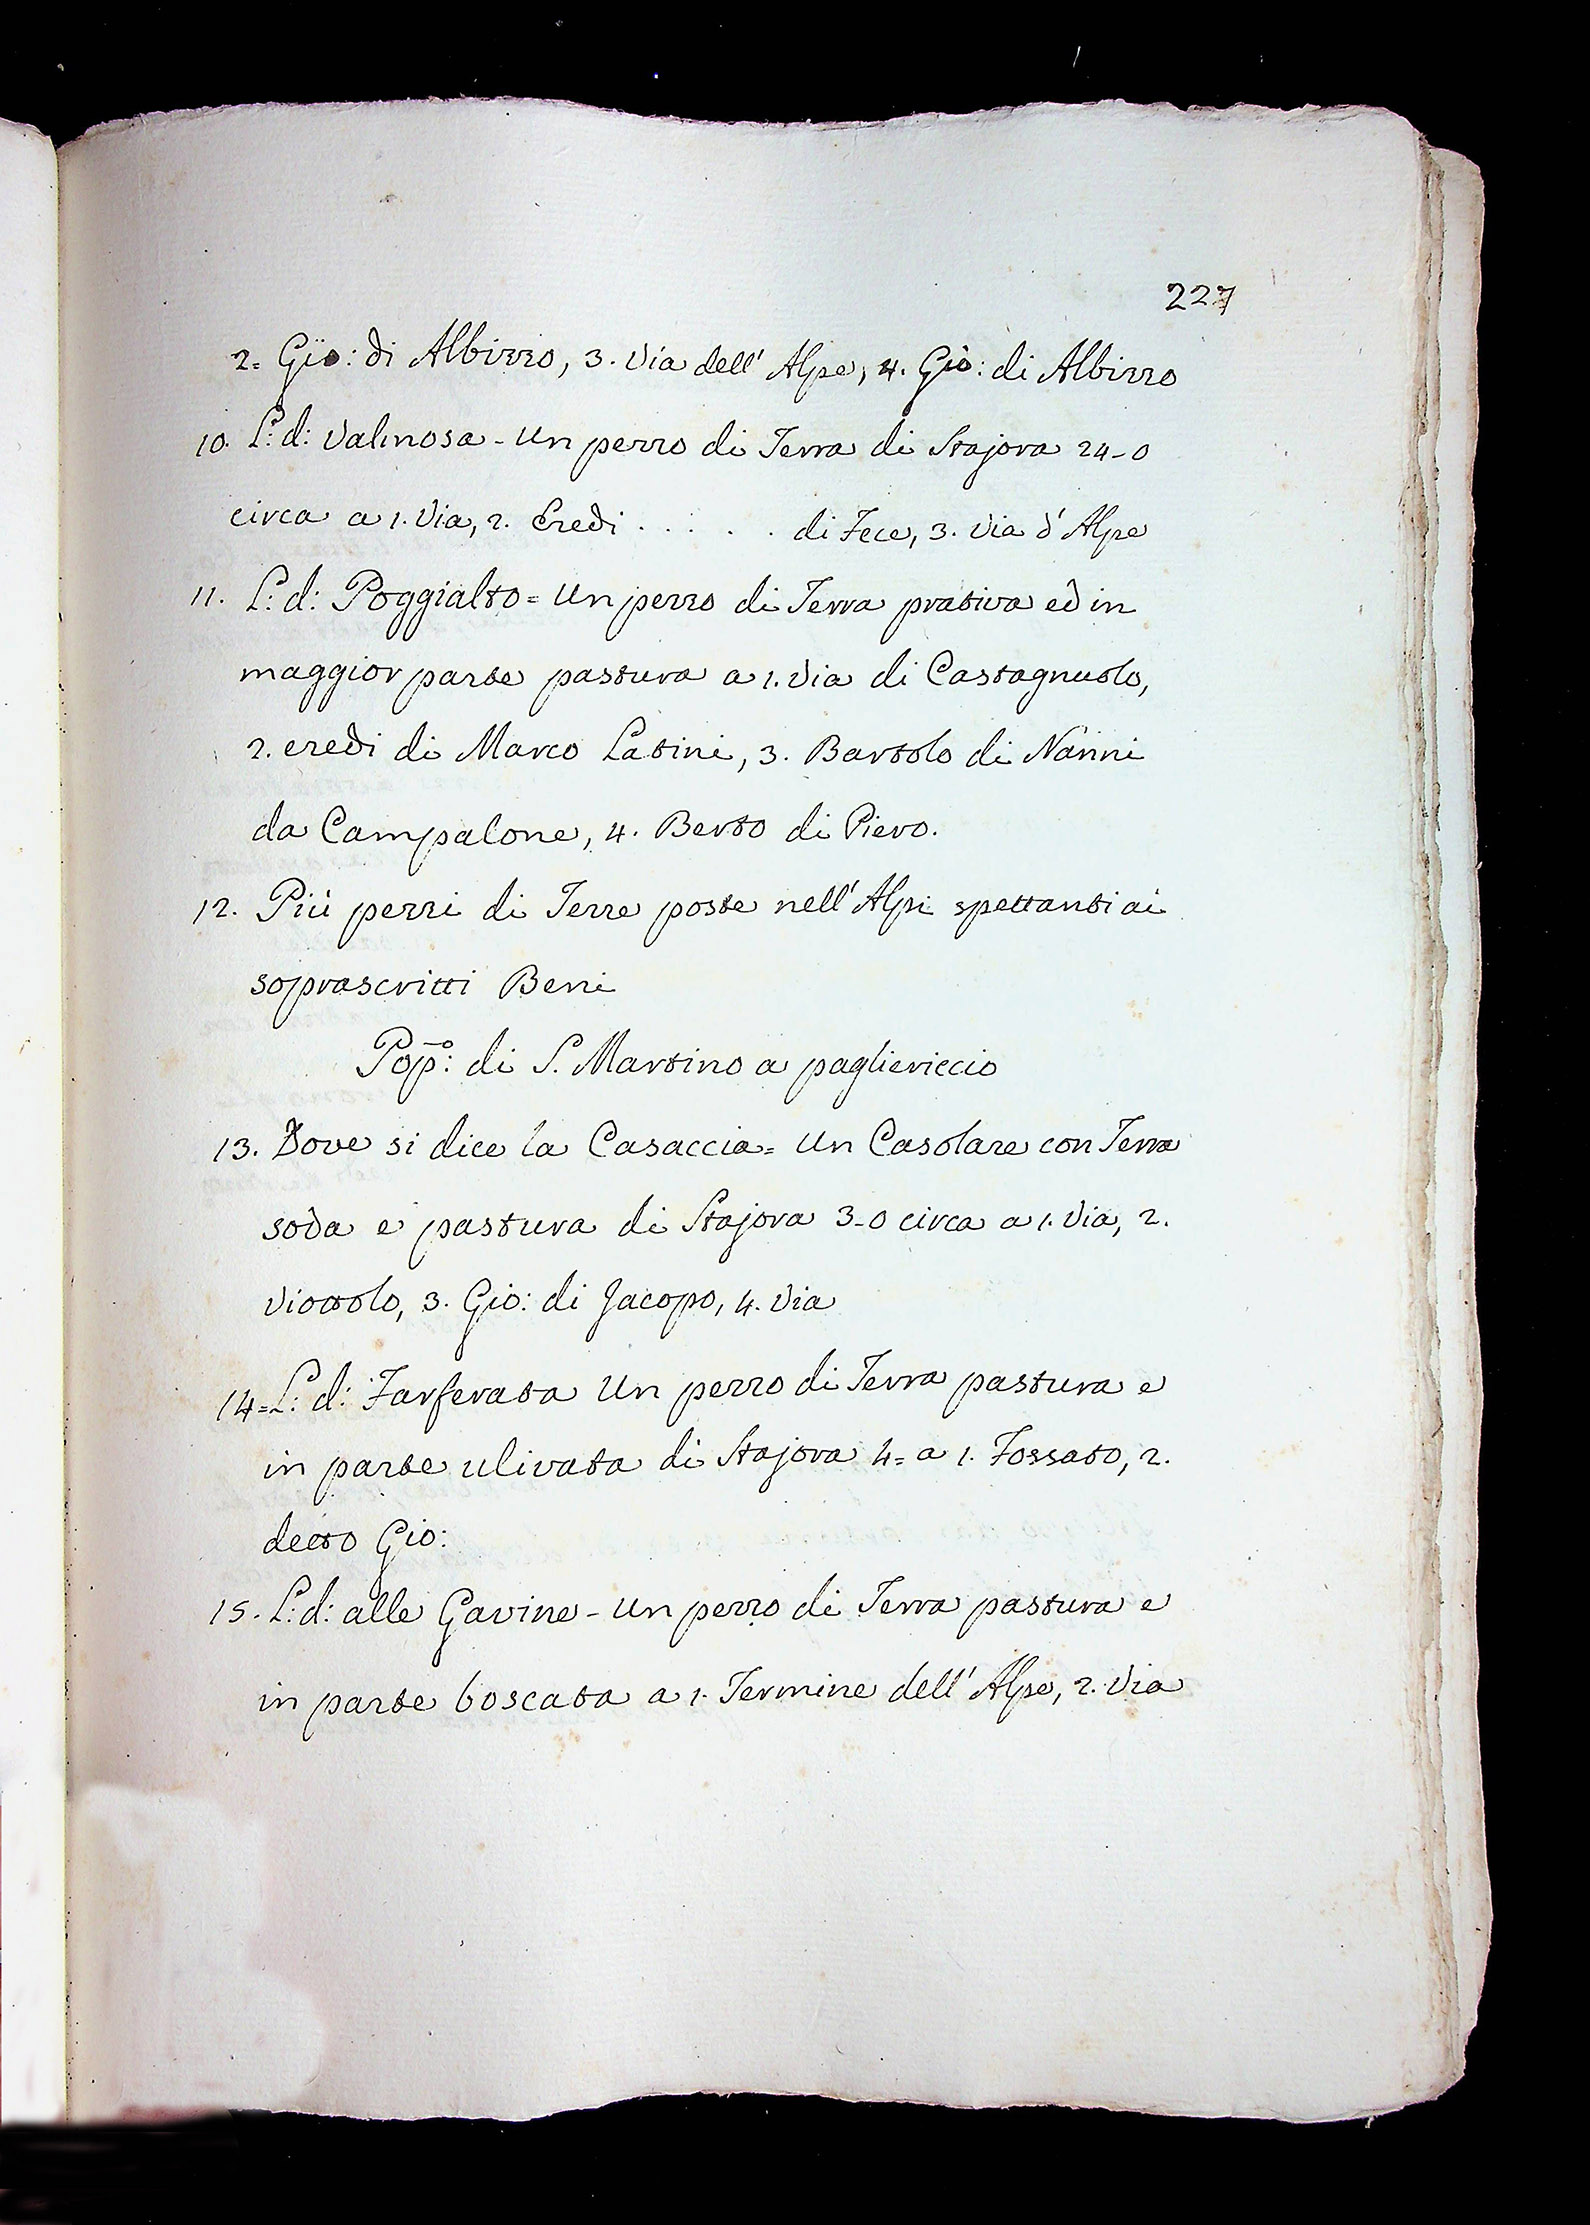 227
2= Gio: di Albizzo, 3. Via dell' Alpe, 4. Gio: di Albizzo
10. L: d: Valinosa - Un pezzo di Terra di Stajora 24-0
circa a 1. Via, 2. Eredi . . . . . di Fece, 3. Via d' Alpe
11. L: d: Poggialto = Un pezzo di Terra prativa ed in
maggior parte pastura a 1. Via di Castagnuolo,
2. eredi di Marco Latini, 3. Bartolo di Nanni
da Campalone, 4. Berto di Piero.
12. Più pezzi di Terre poste nell' Alpi spettanti ai
soprascritti Beni
Pop.o: di S. Martino a pagliericcio
13. Dove si dice la Casaccia = Un Casolare con Terra
soda e pastura di Stajora 3-0 circa a 1. Via, 2.
Viottolo, 3. Gio: di Jacopo, 4. Via
14= L: d: Farferata Un pezzo di Terra pastura e
in parte ulivata di Stajora 4= a 1. Fossato, 2.
detto Gio:
15. L: d: alle Gavine - Un pezzo di Terra pastura e
in parte boscata a 1. Termine dell' Alpe, 2. Via